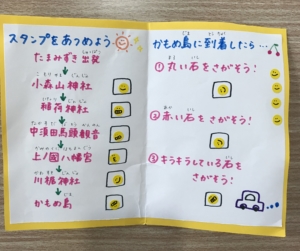 スタンプをあつめよう
たまみずき出発
小森山神社
稲荷神社
中須田馬頭観音
上ノ國八幡宮
川裾神社
かもめ島
かもめ島に到着したら…
①丸い石をさがそう!
②赤い石をさがそう!
③キラキラしている石を
さがそう!